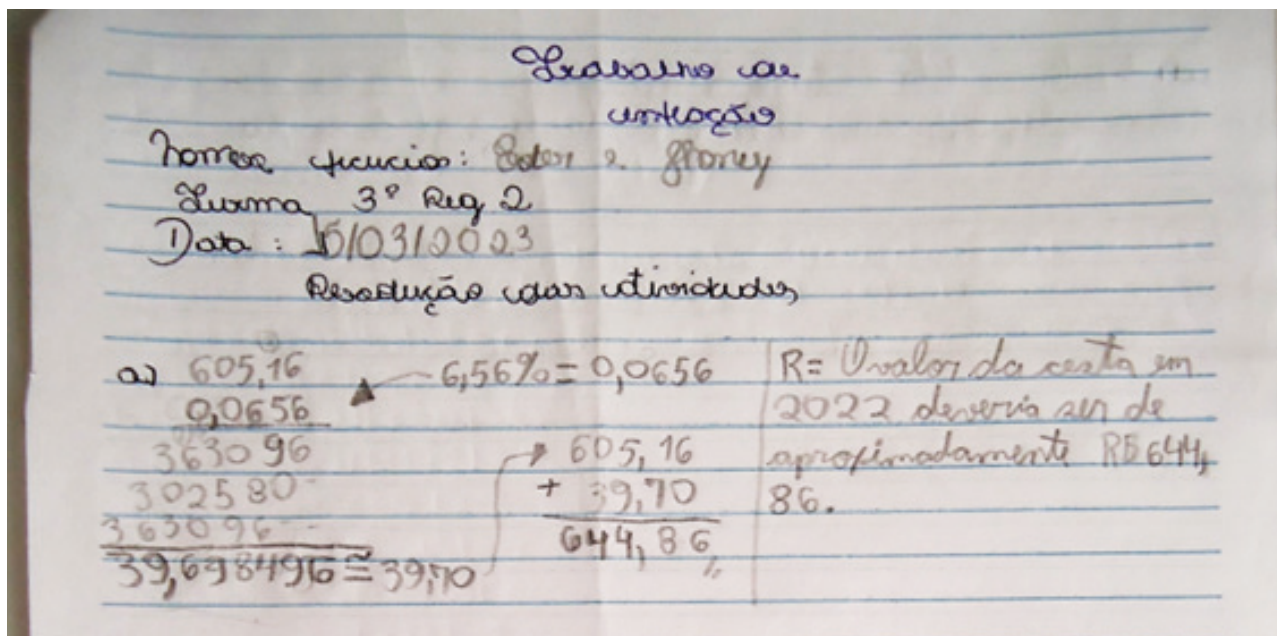 Trabalho de
inflação
Nomes: Eder e
Turma 3º Reg 2
Data: 15/03/2023
Resolução das atividades
a) 605,16
0,0656
363096
302580
363096
39,698496 ≅ 39,70
6,56% = 0,0656
605,16
+ 39,70
644,86
R= O valor da cesta em
2022 deveria ser de
aproximadamente R$ 644,
86.